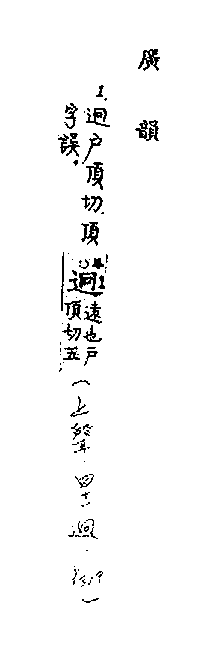 廣韻
1. 迥户頂切。頂
字誤。
迥 遠也户
頂切五
(上聲 四十一迥·